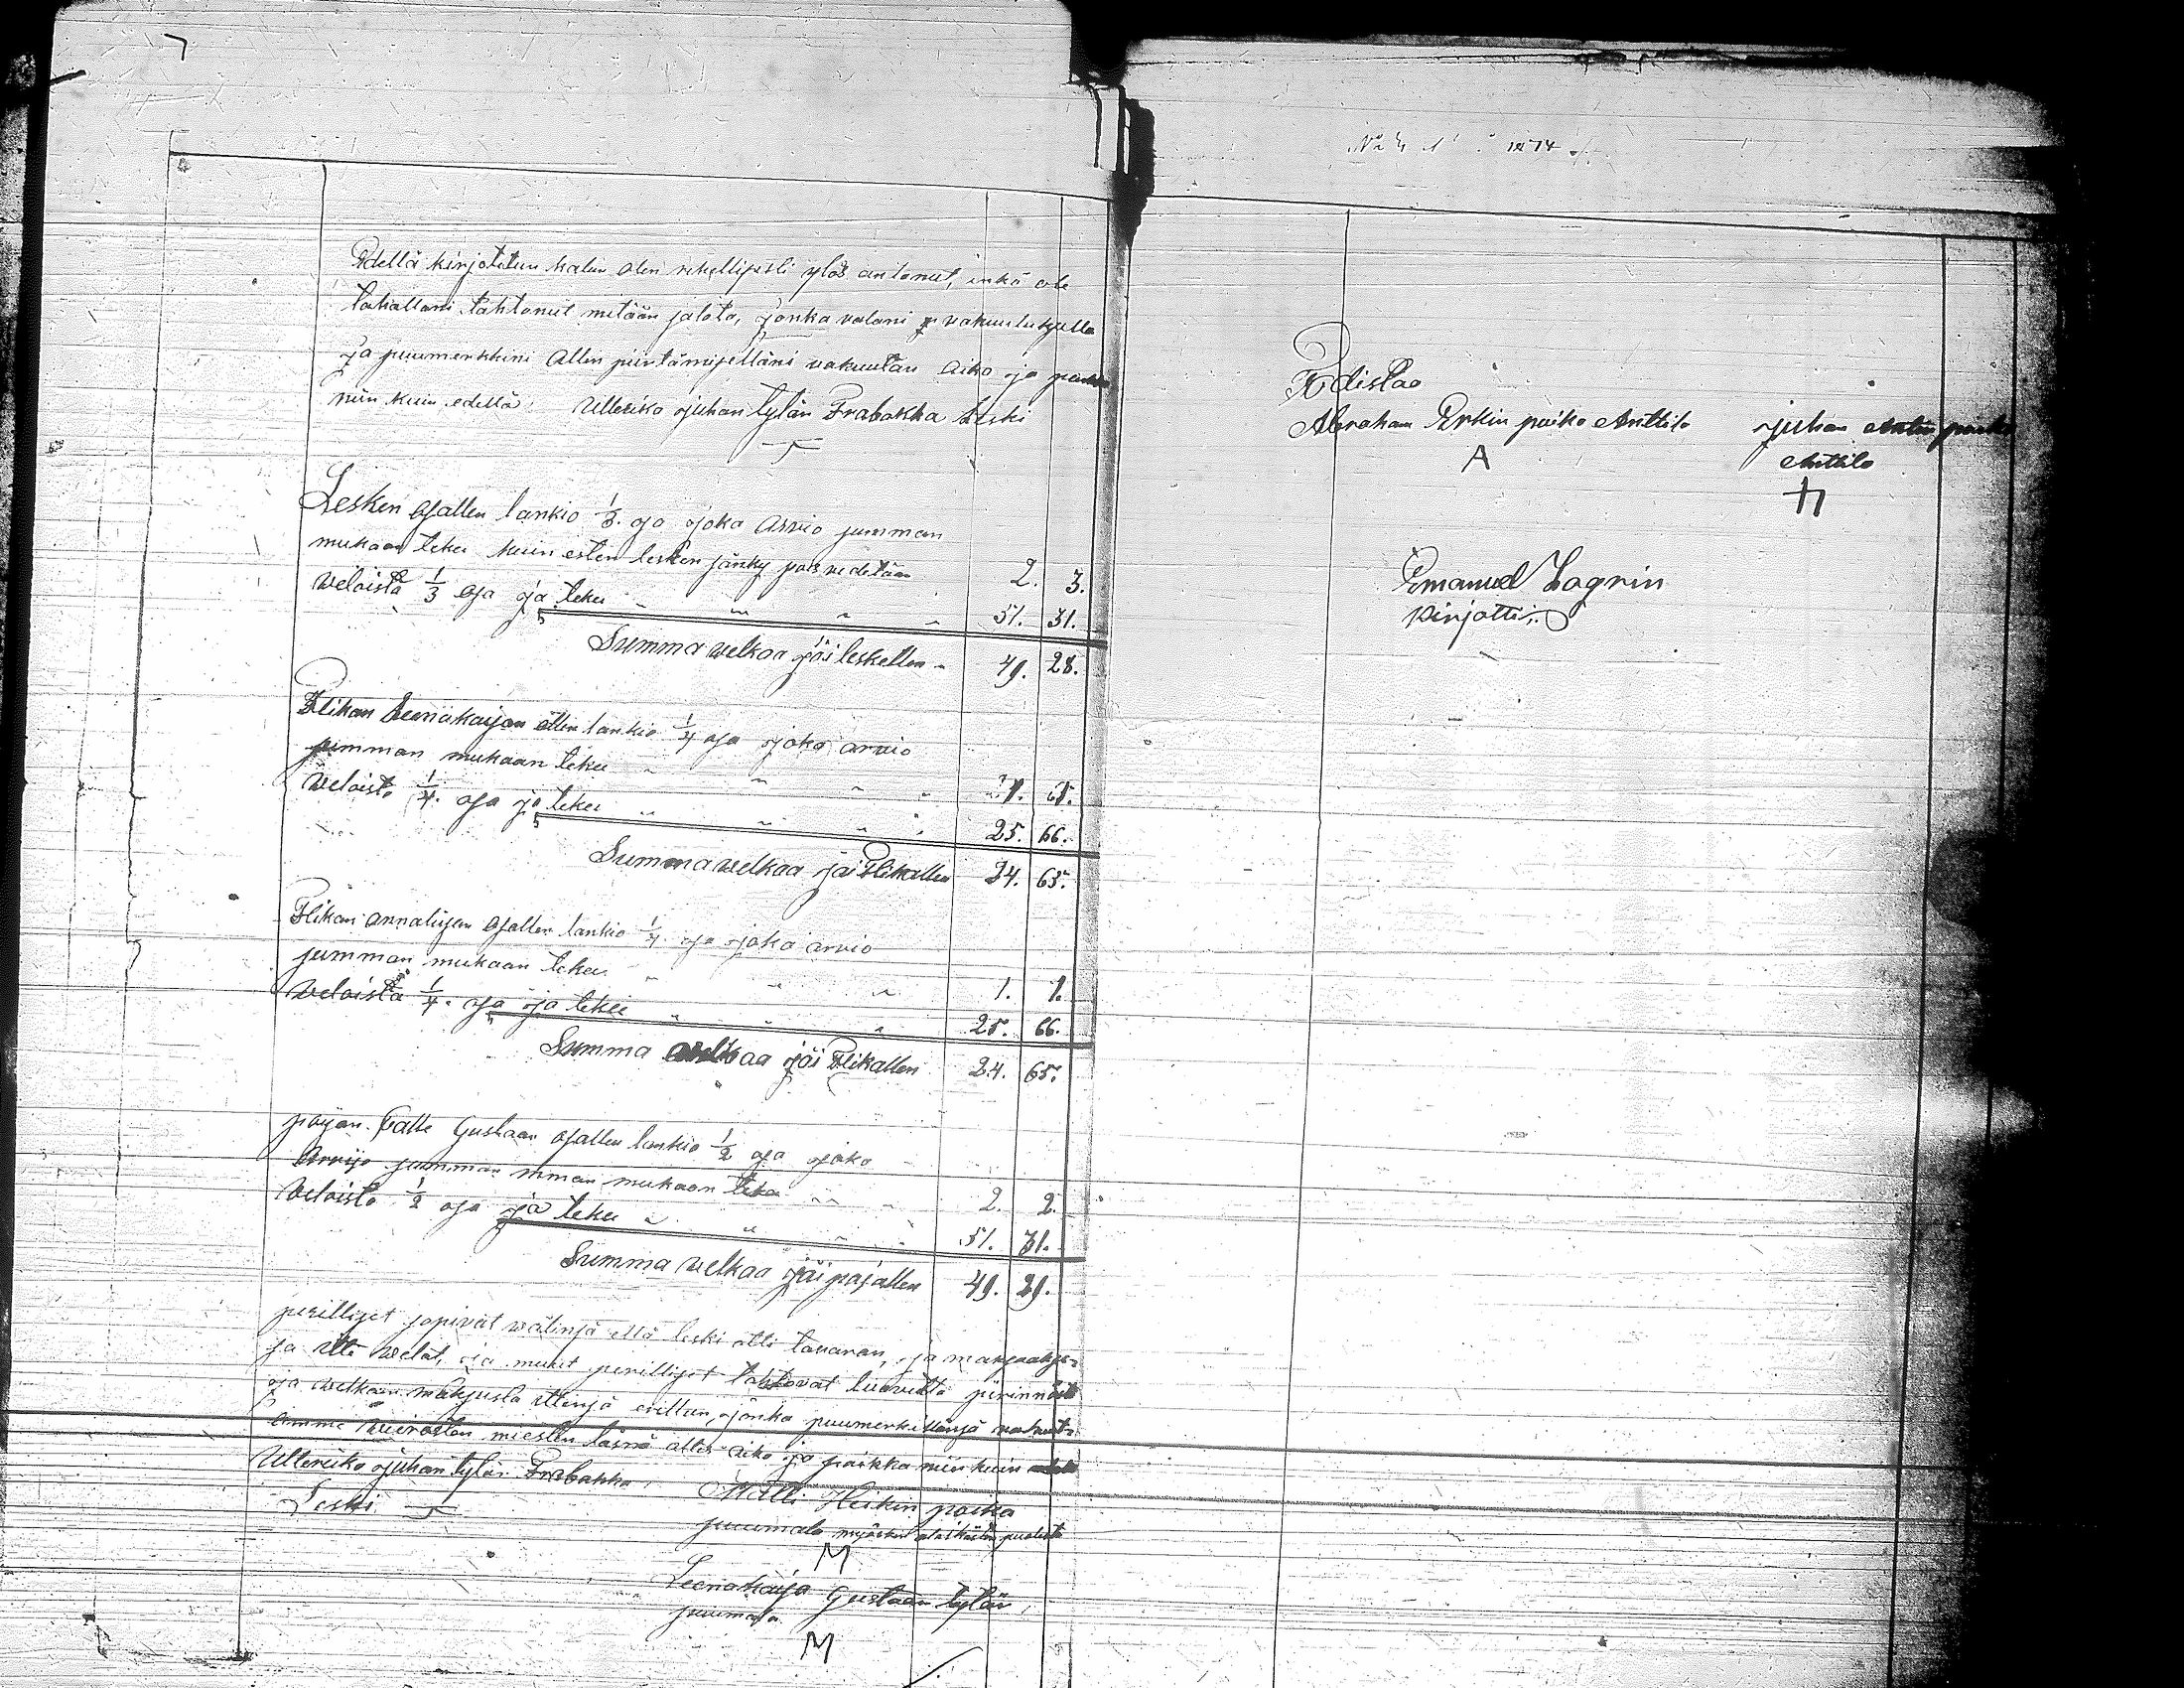 7
Edellä kirjotetun kalun olen rehellisesti ylös antanut, enkä ole
tahallani tahtonut mitään salata, jonka valani vakuutuxella
ja puumerkkini allen piirtämiselläni vakuutan aika ja paikka
niin kuin edellä: Ulleriko Juhan tytär Prabakka Leski
Lesken osallen lankio 1/3. osa joka Arvio summan
mukaan teke kuin esten lesken sänky pois vedetään 2. 3.
Veloista 1/3 osa ja teke " " " " 51. 31.
Summa velkaa jäi leskellen " 49. 28.
Flikan Leenakaijan ollen lankio 1/4 osa joka arvio
summan mukaan teke " " " "
Veloista 1/4. osa ja teke " " " " 25. 66.
Summa velkaa jäi Flikallen 24. 65.
Flikan annaliisan osallen lankio 1/4. osa joka arvio
summan mukaan teke " " " 1. 1.
Veloista 1/4. osa ja teke " " " 25. 66.
Summa velkaa jäi Flikallen 24. 65.
pojan Kalle Gustaan osallen lankio 1/2 osa joka
Arvijo summan mman mukaan teke " " " 2. 2.
Veloista 1/2 osa ja teke " " " " 51. 31.
Summa velkaa jäi pojallen 49. 29.
perilliset sopivat välinsä että leski otti tavaran, ja maksaakse-
sa otti velat, ja muut perilliset tahtovat luovutta perinnöstä
ja velkain maksusta ittensä erillan, jonka puumerkillänsä vakut-
amme vierasten miesten läsnä olles aika ja paikka niin kuin edellä
Ulleriko Juhan tytär Prabakka Matti Heikin poika
Leski puumala myöskin alaikäisten puolesta
M
Leenakaija Gustaan tytär
puumala
M
1874
Todistaa
Abraham Erkin poika Anttila Juhan Antin poika
A Anttila
Emanuel Lagrin
kirjotti: